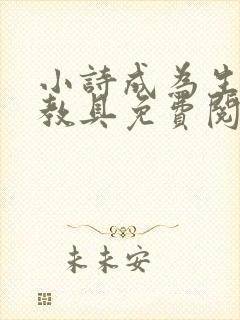 小詩成為生
教具免費閱
未未安